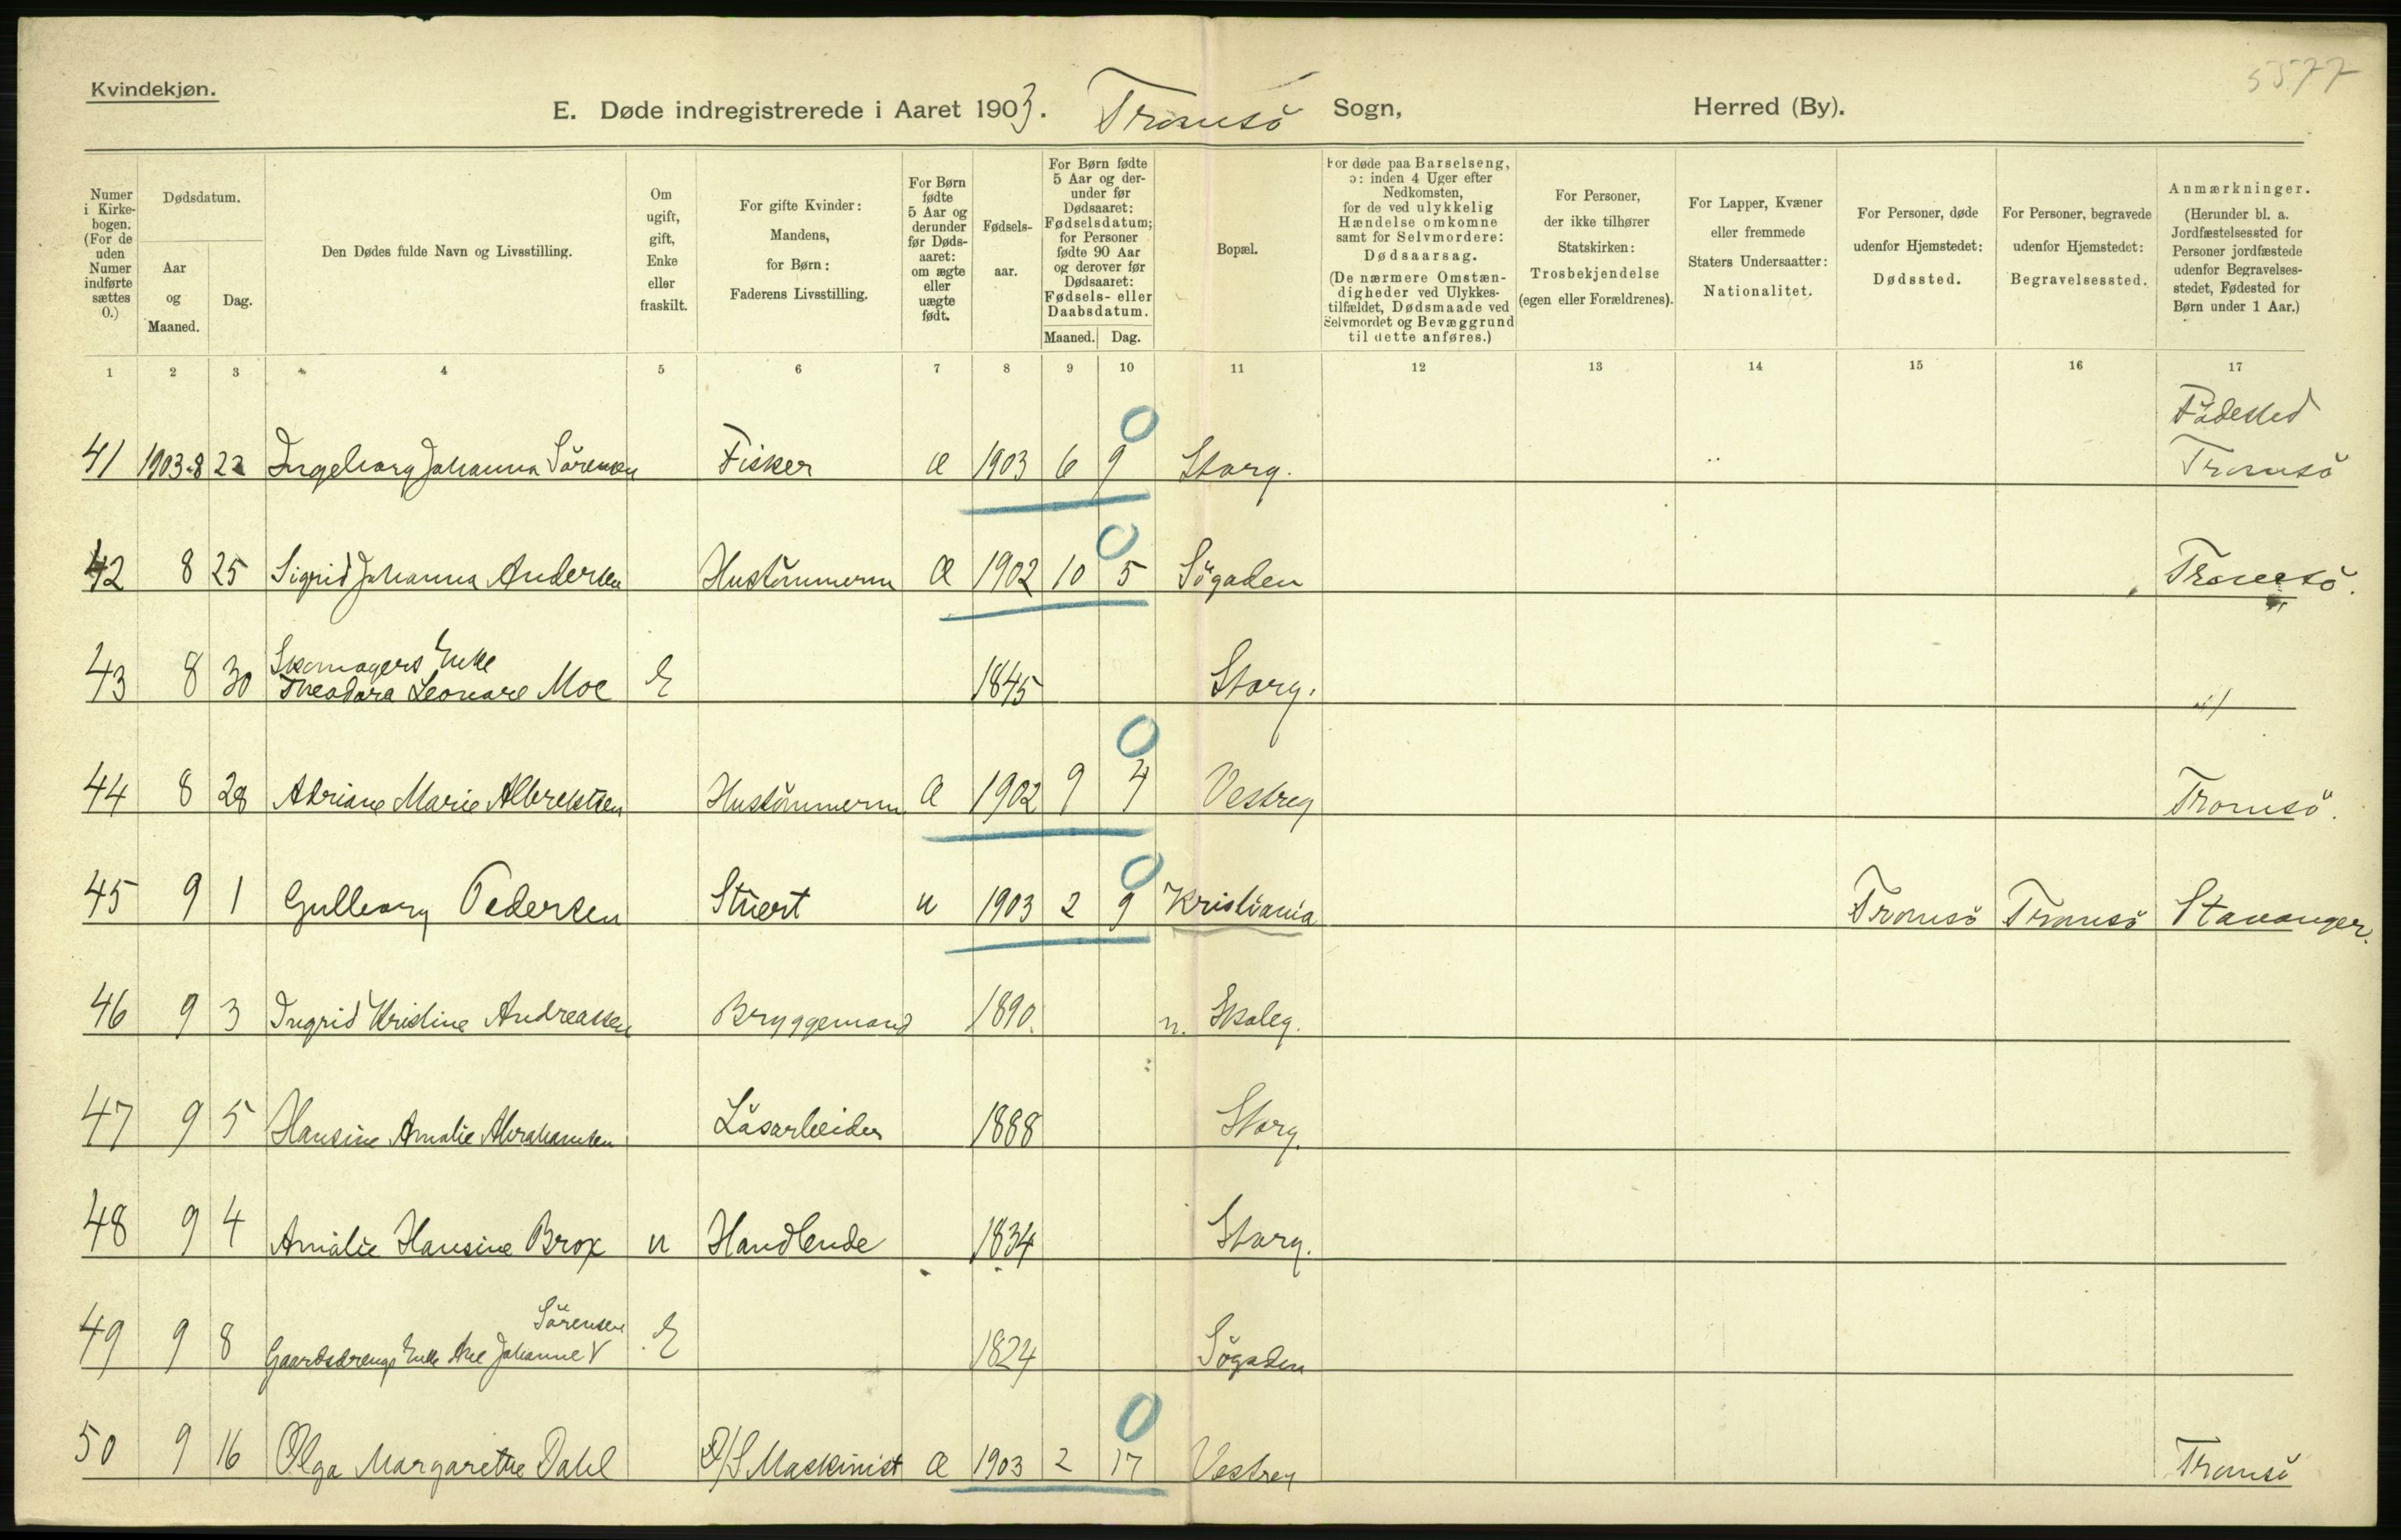 5577
Kvindekjøn.
E. Døde indregistrerede i Aaret 1903. Tromsö Sogn, Herred (By).
Numer i Kirke-bogen. (For de uden Numer indførte sættes 0.)
Dødsdatum.
Aar og Maaned.
Dag.
Den Dødes fulde Navn og Livsstilling.
Om ugift, gift, Enke eller fraskilt.
For gifte Kvinder: Mandens, for Børn: Faderens Livsstilling.
For Børn fødte 5 Aar og derunder før Døds-aaret: om ægte eller uægte født.
Fødsels-aar.
For Børn fødte 5 Aar og der-under før Dødsaaret: Fødselsdatum; for Personer fødte 90 Aar og derover før Dødsaaret: Fødsels- eller Daabsdatum.
Maaned. Dag.
Bopæl.
For døde paa Barselseng, ɔ: inden 4 Uger efter Nedkomsten, for de ved ulykkelig Hændelse omkomne samt for Selvmordere: Dødsaarsag. (De nærmere Omstæn-digheder ved Ulykkes-tilfældet, Dødsmaade ved Selvmordet og Bevæggrund til dette anføres.)
For Personer, der ikke tilhører Statskirken: Trosbekjendelse (egen eller Forældrenes).
For Lapper, Kvæner eller fremmede Staters Undersaatter: Nationalitet.
For Personer, døde udenfor Hjemstedet: Dødssted.
For Personer, begravede udenfor Hjemstedet: Begravelsessted.
Anmærkninger. (Herunder bl. a. Jordfæstelsessted for Personer jordfæstede udenfor Begravelses-stedet, Fødested for Børn under 1 Aar.)
1 2 3 4 5 6 7 8 9 10 11 12 13 14 15 16 17
Födested
41 1903-8 22 Ingeborg Johanna Sörensen Fisker Æ 1903 6 9 0 Storg. Tromsö
42 8 25 Sigrid Johanna Andersen Hustömmerm Æ 1902 10 5 0 Sögaden Tromsö.
Skomagers Enke
43 8 30 Theodora Leonare Moe E 1845 Storg.
44 8 28 Adriane Marie Albrektsen Hustömmerm Æ 1902 9 4 0 Vestreg Tromsö.
45 9 1 Gullborg Pedersen Stuert u 1903 2 9 0 Kristiania Tromsö Tromsö Stavanger.
46 9 3 Ingrid Kristine Andreassen Bryggemand 1890. n. Skoleg.
47 9 5 Hansine Amalie Abrahamsen Lösarbeider 1888 Storg.
48 9 4 Amalie Hansine Brox u Handlende 1834 Storg.
Sörensen
49 9 8 Gaardsdrengs Enke Ane Johanne V E 1824 Sögaden
50 9 16 Olga Margarethe Dahl D/S Maskinist Æ 1903 2 17 0 Vestreg Tromsö